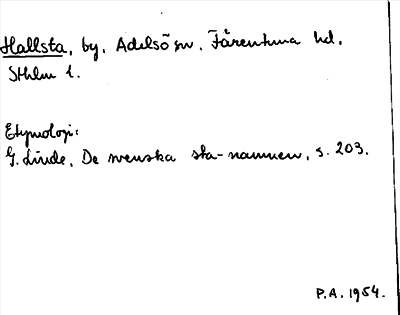 Hallsta, by, Adelsö sn, Färentuna hd,
Sthlm l.
Etymologi:
G. Linde, De svenska sta-namnen, s. 203.
P.A. 1954.